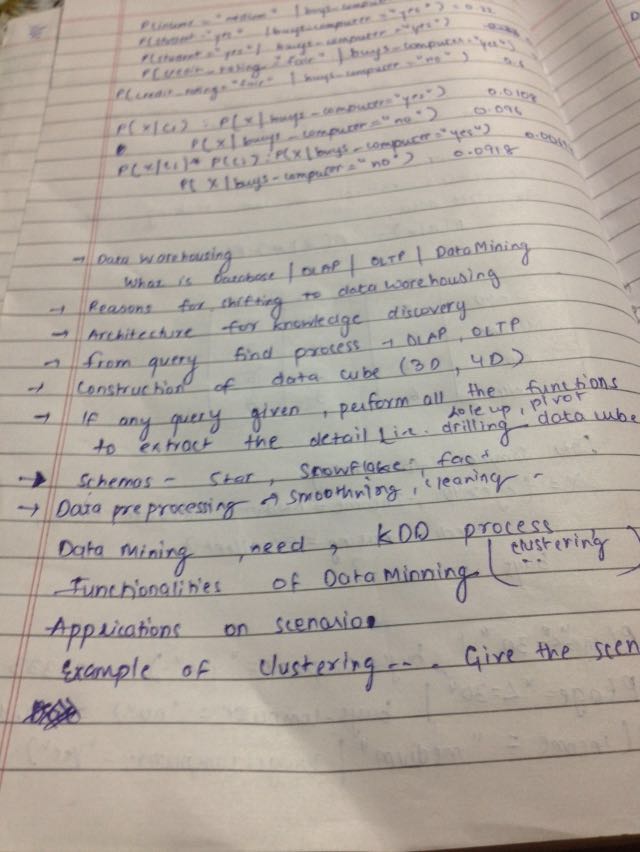 P(income = "medium" | buys-comput
P(student = "yes" | buys-computer = "yes") = 0.22
P(student = "yes" | buys-computer = "yes")
P(credit-rating = "fair" | buys-computer = "yes")
P(credit-rating = "fair" | buys-computer = "no")
P(x|ci) : P(x | buys-computer = "yes") 0.0108
P(x | buys-computer = "no") 0.096
P(x|ci) * P(ci) : P(x | buys-computer = "yes")
P(x | buys-computer = "no") . 0.0918
→ Data Warehousing
What is Database | OLAP | OLTP | Data Mining
→ Reasons for shifting to data warehousing
→ Architecture for knowledge discovery
→ from query find process → OLAP, OLTP
→ Construction of data cube (3D, 4D)
→ If any query given, perform all the functions
role up, pivot
to extract the detail i.e. drilling data cube
→ Schemas - Star, Snowflake, fact
→ Data preprocessing → smoothning, cleaning -
Data Mining, need, KDD process
Functionalities of Data Minning (clustering ..)
Applications on scenario.
Example of clustering --. Give the scen